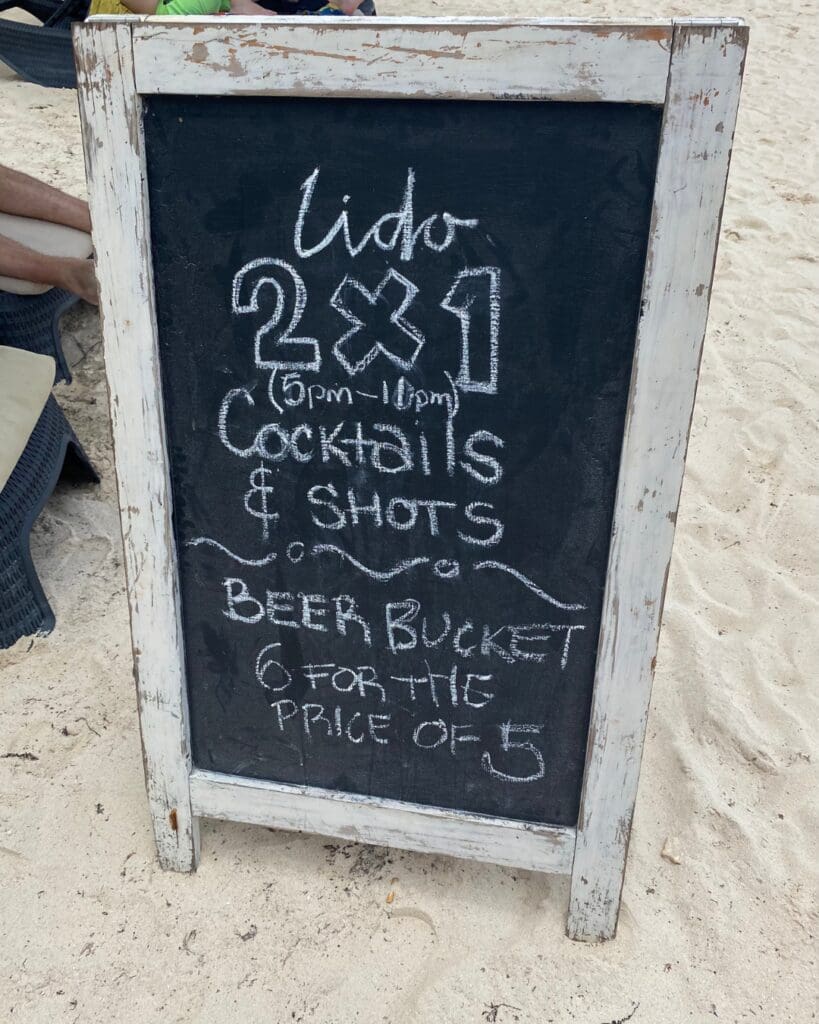 Lido
2x1
(5pm-10pm)
Cocktails
& SHOTS
BEER BUCKET
6 FOR THE
PRICE OF 5